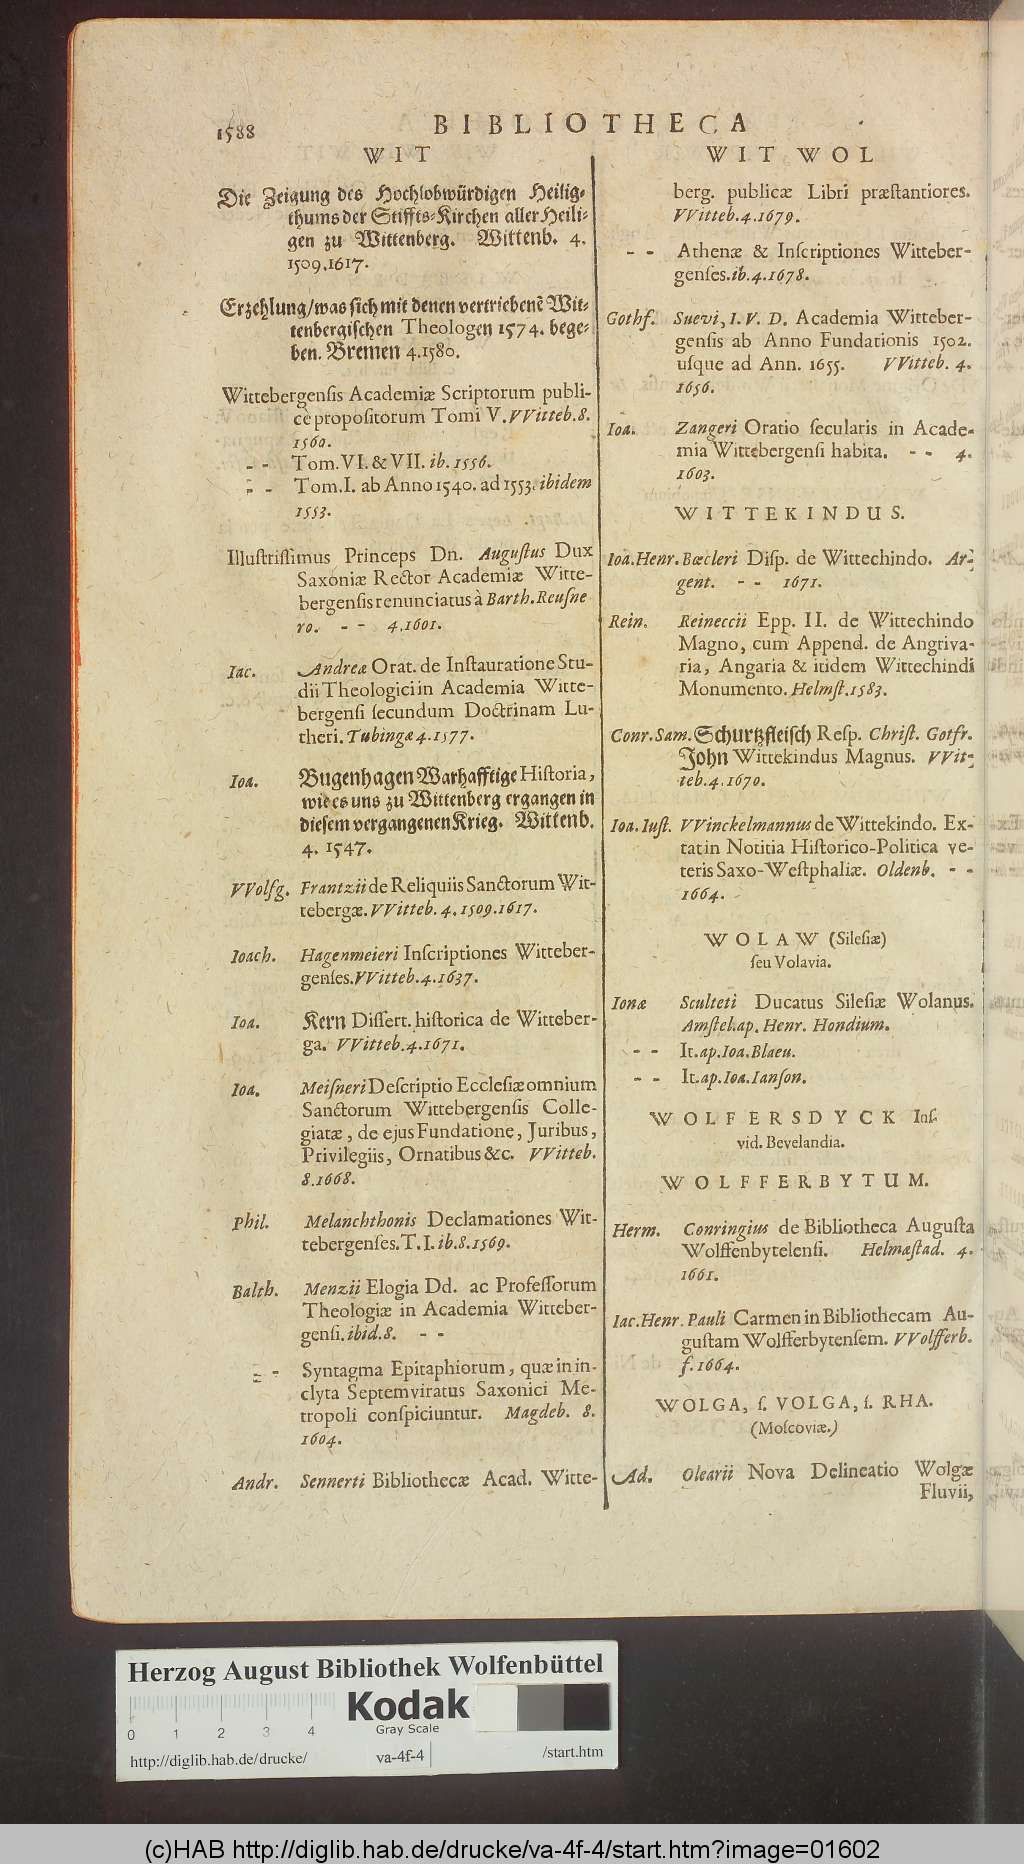 1588
BIBLIOTHECA
WIT
Die Zeigung des Hochlobwürdigen Heilig-
thums der Stiffts-Kirchen aller Heili-
gen zu Wittenberg. Wittenb. 4.
1509.1617.
Erzehlung/was sich mit denen vertriebenē Wit-
tenbergischen Theologen 1574. bege-
ben. Bremen 4.1580.
Wittebergensis Academiæ Scriptorum publi-
ce propositorum Tomi V. VVitteb.8.
1560.
- - Tom.VI. & VII. ib. 1556.
- - Tom.I. ab Anno 1540. ad 1553. ibidem
1553.
Illustrissimus Princeps Dn. Augustus Dux
Saxoniæ Rector Academiæ Witte-
bergensis renunciatus à Barth. Reusne
ro. - - 4.1601.
Iac. Andreæ Orat. de Instauratione Stu-
dii Theologici in Academia Witte-
bergensi secundum Doctrinam Lu-
theri. Tubingæ 4.1577.
Ioa. Bugenhagen Warhafftige Historia,
wie es uns zu Wittenberg ergangen in
diesem vergangenen Krieg. Wittenb.
4. 1547.
VVolfg. Frantzii de Reliquiis Sanctorum Wit-
tebergæ. VVitteb. 4.1509.1617.
Ioach. Hagenmeieri Inscriptiones Witteber-
genses. VVitteb.4.1637.
Ioa. Kern Dissert. historica de Witteber-
ga. VVitteb.4.1671.
Ioa. Meisneri Descriptio Ecclesiæ omnium
Sanctorum Wittebergensis Colle-
giatæ, de ejus Fundatione, Juribus,
Privilegiis, Ornatibus &c. VVitteb.
8.1668.
Phil. Melanchthonis Declamationes Wit-
tebergenses. T. I. ib.8.1569.
Balth. Menzii Elogia Dd. ac Professorum
Theologiæ in Academia Witteber-
gensi. ibid.8. - -
- - Syntagma Epitaphiorum, quæ in in-
clyta Septemviratus Saxonici Me-
tropoli conspiciuntur. Magdeb. 8.
1604.
Andr. Sennerti Bibliothecæ Acad. Witte-
WIT WOL
berg. publicæ Libri præstantiores.
VVitteb.4.1679.
- - Athenæ & Inscriptiones Witteber-
genses. ib.4.1678.
Gothf. Suevi, I. V. D. Academia Witteber-
gensis ab Anno Fundationis 1502.
usque ad Ann. 1655. VVitteb. 4.
1656.
Ioa. Zangeri Oratio secularis in Acade-
mia Wittebergensi habita. - - 4.
1603.
WITTEKINDUS.
Ioa.Henr. Bœcleri Disp. de Wittechindo. Ar-
gent. - - 1671.
Rein. Reineccii Epp. II. de Wittechindo
Magno, cum Append. de Angriva-
ria, Angaria & itidem Wittechindi
Monumento. Helmst.1583.
Conr. Sam. Schurtzfleisch Resp. Christ. Gotfr.
John Wittekindus Magnus. VVit-
teb.4.1670.
Ioa. Iust. VVinckelmannus de Wittekindo. Ex-
tat in Notitia Historico-Politica ve-
teris Saxo-Westphaliæ. Oldenb. - -
1664.
WOLAW (Silesiæ)
seu Volavia.
Ionæ Sculteti Ducatus Silesiæ Wolanus.
Amstel.ap. Henr. Hondium.
- - It.ap.Ioa.Blaeu.
- - It.ap.Ioa.Ianson.
WOLFERSDYCK Ins.
vid. Bevelandia.
WOLFFERBYTUM.
Herm. Conringius de Bibliotheca Augusta
Wolffenbytelensi. Helmæstad. 4.
1661.
Iac.Henr. Pauli Carmen in Bibliothecam Au-
gustam Wolfferbytensem. VVolfferb.
f.1664.
WOLGA, s. VOLGA, s. RHA.
(Moscoviæ.)
Ad. Olearii Nova Delineatio Wolgæ
Fluvii,
Herzog August Bibliothek Wolfenbüttel
0 1 2 3 4
Kodak
Gray Scale
http://diglib.hab.de/drucke/ va-4f-4 /start.htm
(c)HAB http://diglib.hab.de/drucke/va-4f-4/start.htm?image=01602